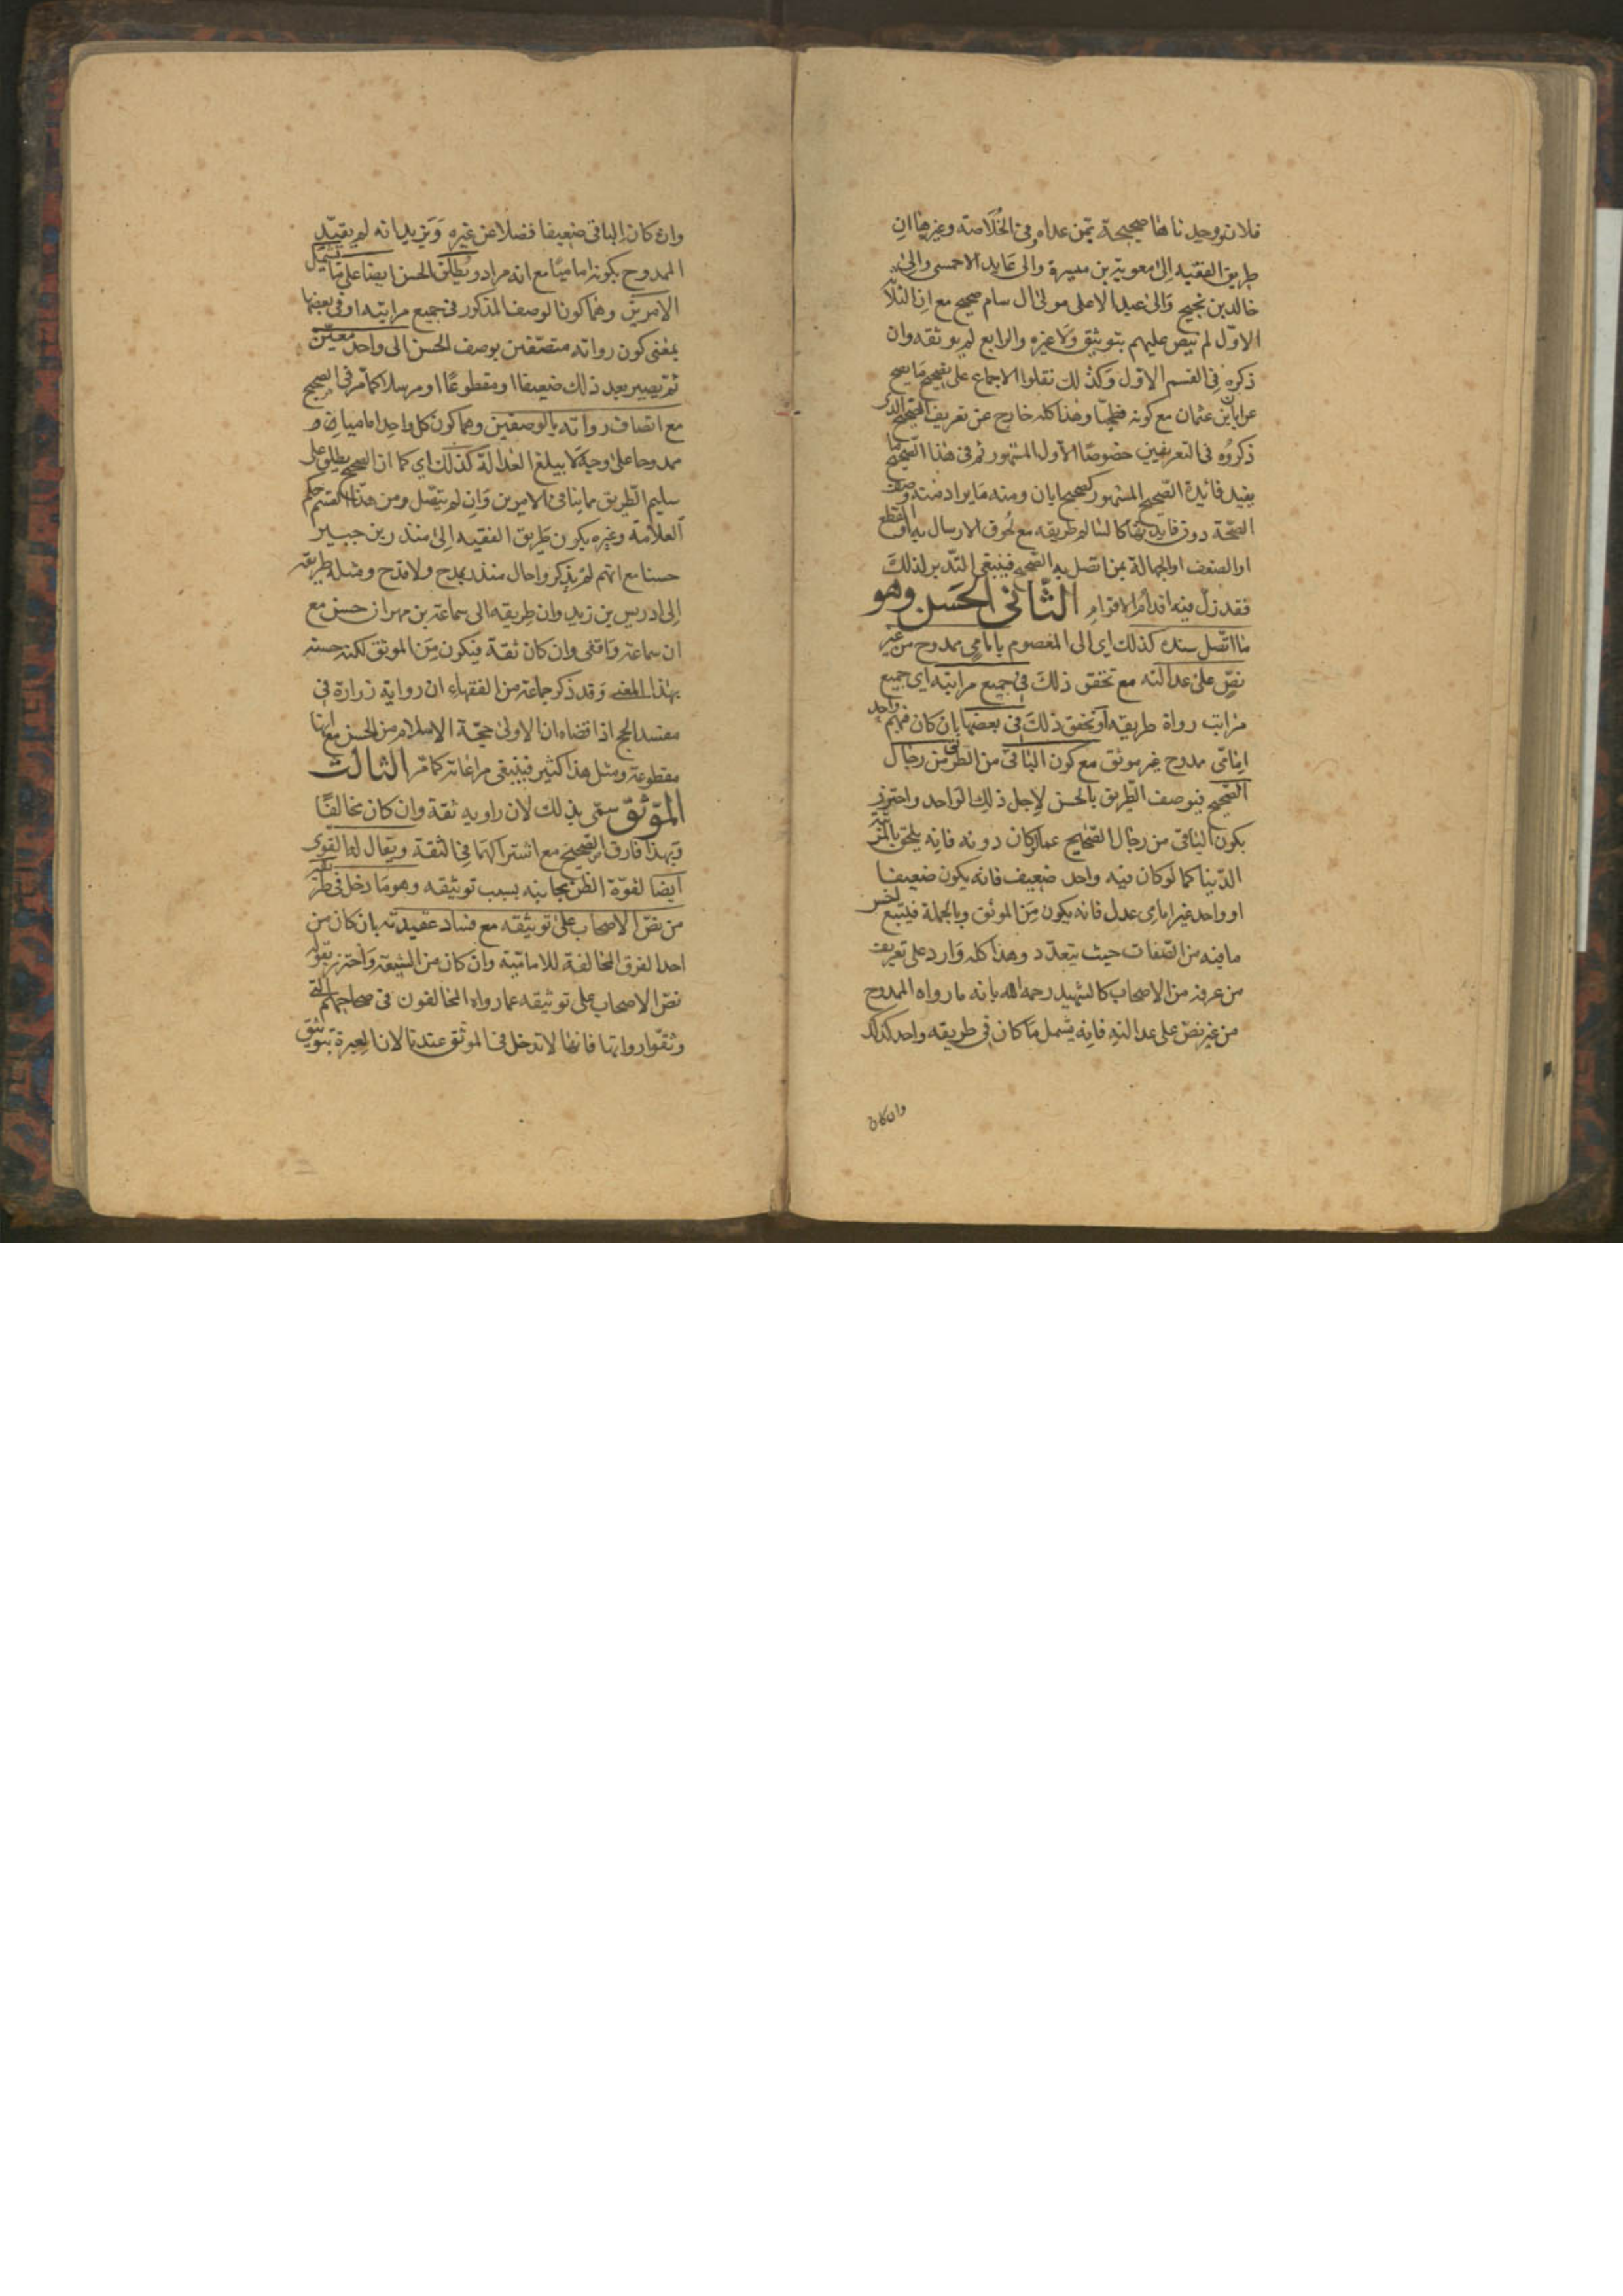 فلان وجدناها صحيحة بمن عداه وفي الخلاصة وغيرها ان
طريق الفقيه الى معوية بن ميسرة والى عايد الاحمسي والى
خالد بن نجيح والى عبد الاعلى مولى ال سام صحيح مع ان الثلاثة
الاول لم ينص عليهم بتوثيق ولا غيره والرابع لم يوثقه وان
ذكره في القسم الاول وكذلك نقلوا الاجماع على تصحيح ما يصح
عن ابان بن عثمان مع كونه فطحيا وهذا كله خارج عن تعريف الصحيح الذي
ذكروه في التعريفين خصوصا الاول المشهور ثم في هذا الصحيح ما
يفيد فائدة الصحيح المشهور كصحيح ابان ومنه ما يراد منه وصف
الصحة دون فايدتها كالسالم طريقه مع لحوق الارسال به او القطع
او الضعف او الجهالة بمن اتصل به الصحيح فينبغي التدبر لذلك
فقد زل فيه اقدام اقوام الثاني الحسن وهو
ما اتصل سنده كذلك اي الى المعصوم بامامي ممدوح من غير
نص على عدالته مع تحقق ذلك في جميع مراتبه اي جميع
مراتب رواة طريقه او تحقق ذلك في بعضها بان كان فيهم واحد
امامي ممدوح غير موثق مع كون الباقي من الطريق من رجال
الصحيح فيوصف الطريق بالحسن لاجل ذلك الواحد واحترز
بكون الباقي من رجال الصحيح عما لو كان دونه فانه يلحق بالمرتبة
الدنيا كما لو كان فيه واحد ضعيف فانه يكون ضعيفا
او واحد غير امامي عدل فانه يكون من الموثق وبالجملة فيتبع اخس
ما فيه من الصفات حيث يتعدد وهذا كله وارد على تعريف
من عرفه من الاصحاب كالشهيد رحمه الله بانه ما رواه الممدوح
من غير نص على عدالته فانه يشمل ما كان في طريقه واحد كذلك
وان كان
وان كان الباقي ضعيفا فضلا عن غيره ويزيد انه لم يقيد
الممدوح بكونه اماميا مع انه مراد ويطلق الحسن ايضا على ما يشمل
الامرين وهما كون الوصف المذكور في جميع مراتبه او في بعضها
بمعنى كون رواته متصفين بوصف الحسن الى واحد معين
ثم يصير بعد ذلك ضعيفا او مقطوعا او مرسلا كما مر في الصحيح
مع اتصاف رواته بالوصفين وهما كون كل واحد اماميا و
ممدوحا على وجه لا يبلغ العدالة كذلك اي كما ان الصحيح يطلق على
سليم الطريق مما ينافي الامرين وان لم يتصل ومن هذا القسم حكم
العلامة وغيره بكون طريق الفقيه الى منذر بن جبير
حسنا مع انهم لم يذكروا حال منذر بمدح ولا قدح ومثله طريقه
الى ادريس بن زيد وان طريقه الى سماعة بن مهران حسن مع
ان سماعة واقفي وان كان ثقة فيكون من الموثق لكنه حسنه
بهذا المعنى وقد ذكر جماعة من الفقهاء ان رواية زرارة في
مفسد الحج اذا قضاه ان الاولى حجة الاسلام من الحسن مع انها
مقطوعة ومثل هذا كثير فينبغي مراعاته كما مر الثالث
الموثق سمي بذلك لان راويه ثقة وان كان مخالفا
وبهذا فارق الصحيح مع اشتراكهما في الثقة ويقال له القوي
ايضا لقوة الظن بجانبه بسبب توثيقه وهو ما دخل في طريقه
من نص الاصحاب على توثيقه مع فساد عقيدته بان كان من
احد الفرق المخالفة للامامية وان كان من الشيعة واحترز بقوله
نص الاصحاب على توثيقه عما رواه المخالفون في صحاحهم التي
وثقوا رواتها فانها لا تدخل في الموثق عندنا لان العبرة بتوثيق